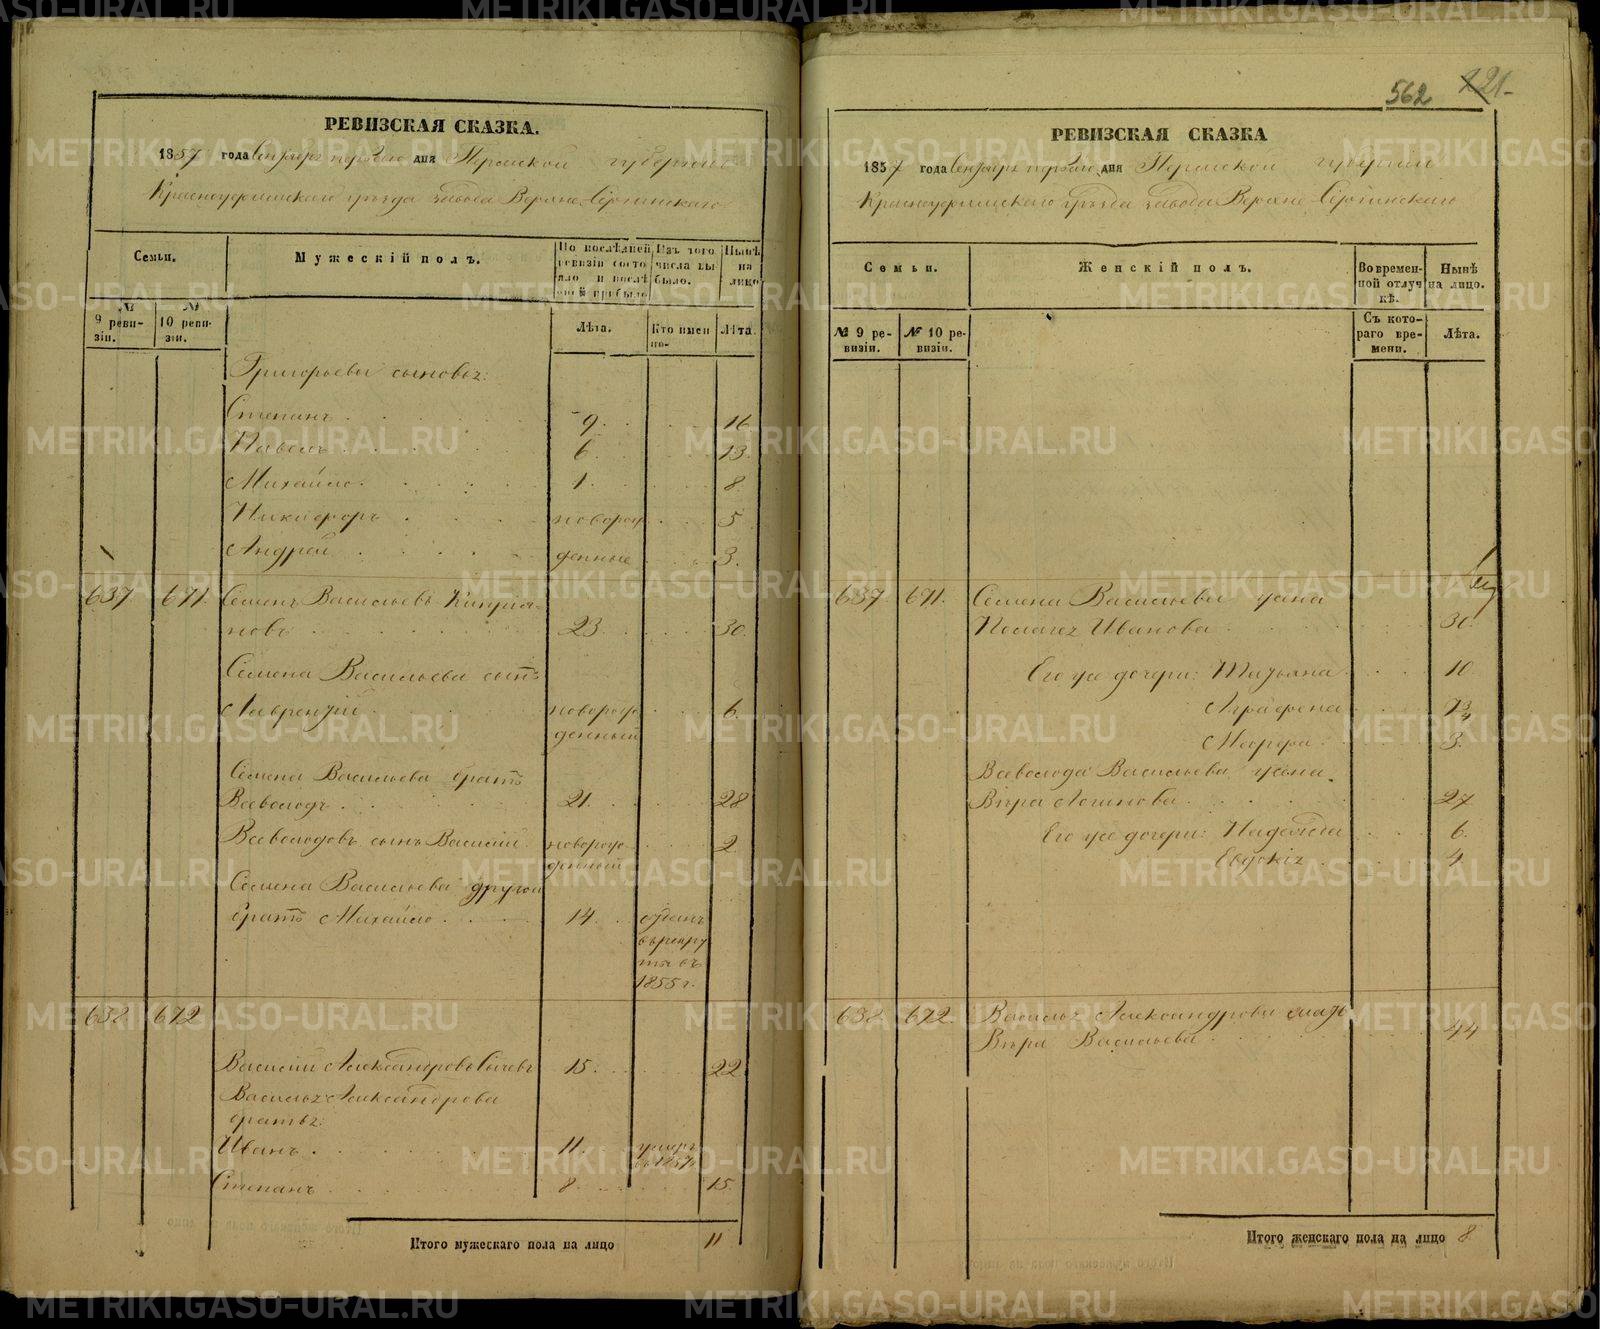 РЕВИЗСКАЯ СКАЗКА.
1857 года Сентября первого дня Пермской губернии
Красноуфимского уѣзда завода Верхне-Сергинскаго
Семьи.
Мужескій полъ.
По послѣдней ревизіи состояло и послѣ оной прибыло
Изъ того числа выбыло.
Нынѣ на лицо
№ 9 ревизіи.
№ 10 ревизіи.
Лѣта.
Кто именно.
Лѣта.
Григорьевы сыновья:
Степанъ 9. 16
Павелъ 6. 13.
Михайло 1. 8.
Никифоръ новорож 5
Андрей денные 3.
637 671. Семенъ Васильевъ Киприя-
новъ 23. 30.
Семена Васильева сынъ
Лаврентій новорож 6.
денный
Семена Васильева братъ
Всеволодъ 21. 28
Всеволодовъ сынъ Василій новорож 2.
денный
Семена Васильева другой
братъ Михайло 14. отданъ
въ рекру
ты въ
1855 г.
638. 672
Василій Александровъ 15. 22
Васильа Александрова
братья:
Иванъ 11. умеръ
въ 1857
Степанъ 8. 15.
Итого мужескаго пола на лицо 11
562 121.
РЕВИЗСКАЯ СКАЗКА
1857 года Сентября первого дня Пермской губернии
Красноуфимскаго уѣзда завода Верхне Сергинскаго
Семьи.
Женскій полъ.
Во временной отлучкѣ.
Нынѣ на лицо.
№ 9 ревизіи.
№ 10 ревизіи.
Съ котораго времени.
Лѣта.
637. 671. Семена Васильева жена
Пелагея Иванова 30.
Его же дочери: Татьяна 10.
Аграфена
Марфа 3.
Всеволода Васильева жена
Вѣра Логинова 27
Его же дочери: Надежда 6.
Евдокія 4.
638. 672. Василья Александрова мать
Вѣра Васильева 44
Итого женскаго пола на лицо 8.
METRIKI.GASO-URAL.RU